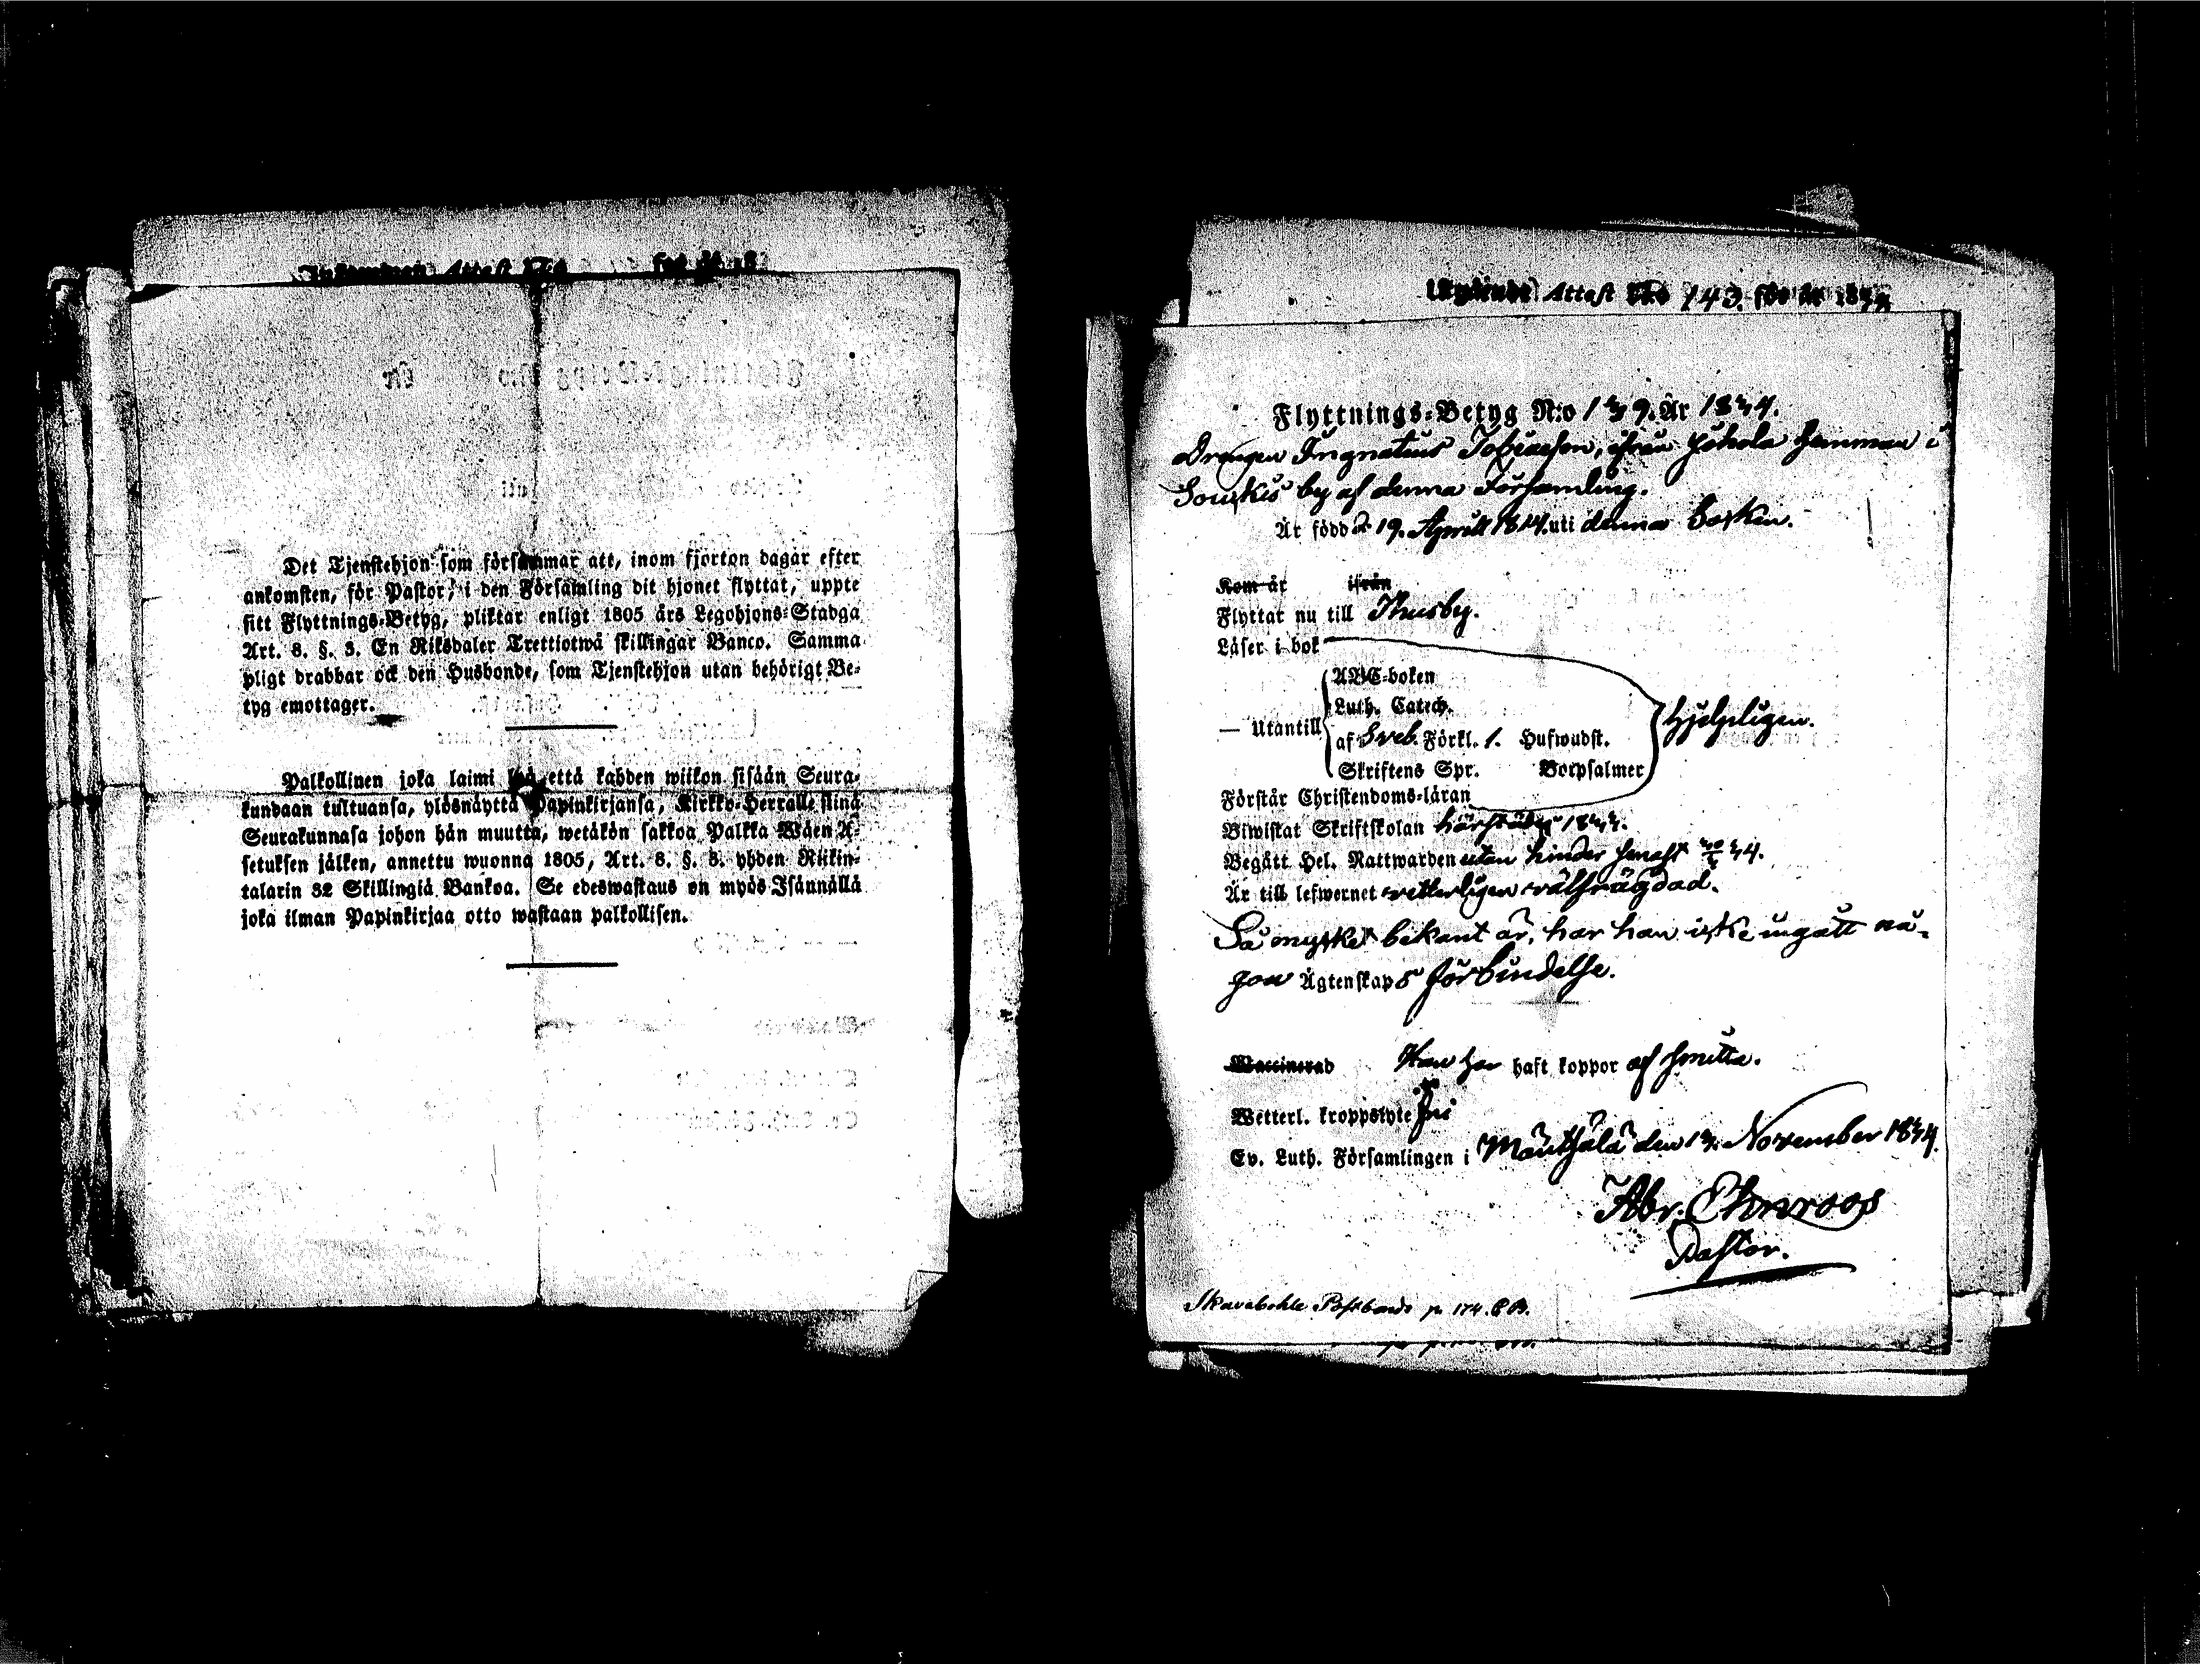 Inkommen Attest N:o för år 18
Det Tjenstehjon som försummar att, inom fjorton dagar efter
ankomsten, för Pastor, i den Församling dit hjonet flyttat, uppte
sitt Flyttnings-Betyg, pliktar enligt 1805 års Legohjons-Stadga
Art. 8. §. 3. En Riksdaler Trettiotwå skillingar Banco. Samma
pligt drabbar ock den Husbonde, som Tjenstehjon utan behörigt Be-
tyg emottager.
Palkollinen joka laimi lyö, että kahden wiikon sisään Seura-
kundaan tultuansa, ylösnäyttä Papinkirjansa, Kirkko-Herralle siinä
Seurakunnasa johon hän muutta, wetäkön sakkoa Palkka Wäen A-
setuksen jälken, annettu wuonna 1805, Art. 8. §. 3. yhden Riikin-
talarin 32 Skillingiä Bankoa. Se edeswastaus on myös Isännällä
joka ilman Papinkirjaa otto wastaan palkollisen.
Attest N:o 143 för år 1844
Flyttnings-Betyg N:o 149. År 1844.
Drängen Ingnatius Tobiaeson, ifrån Johola hemman i
by af denna Församling.
Är född d 19. Aprill 1814. uti denna Socken.
Kom år ifrån
Flyttar nu till Thusby.
Läser i bok
ABC-boken
Luth. Catech.
— Utantill af Sveb. Förkl. 1. Hufwudst. hjelpligen.
Skriftens Spr. Botpsalmer
Förstår Christendoms-läran
Biwistat Skriftskolan härstädes
Begått Hel. Nattwarden utan hinder senast 44.
Är till lefwernet wetterligen wälfrägdad.
Så mycket bekant är, har han icke ingått nå-
gon Ägtenskaps förbindelse.
Waccinerad Han har haft koppor af smitta.
Wetterl. kroppslyte fri
Ev. Luth. Församlingen i Mäntsälä den November 1844.
Abr. Ehnroos
Pastor.
Skavaböhle Postbonds p 174. C B.